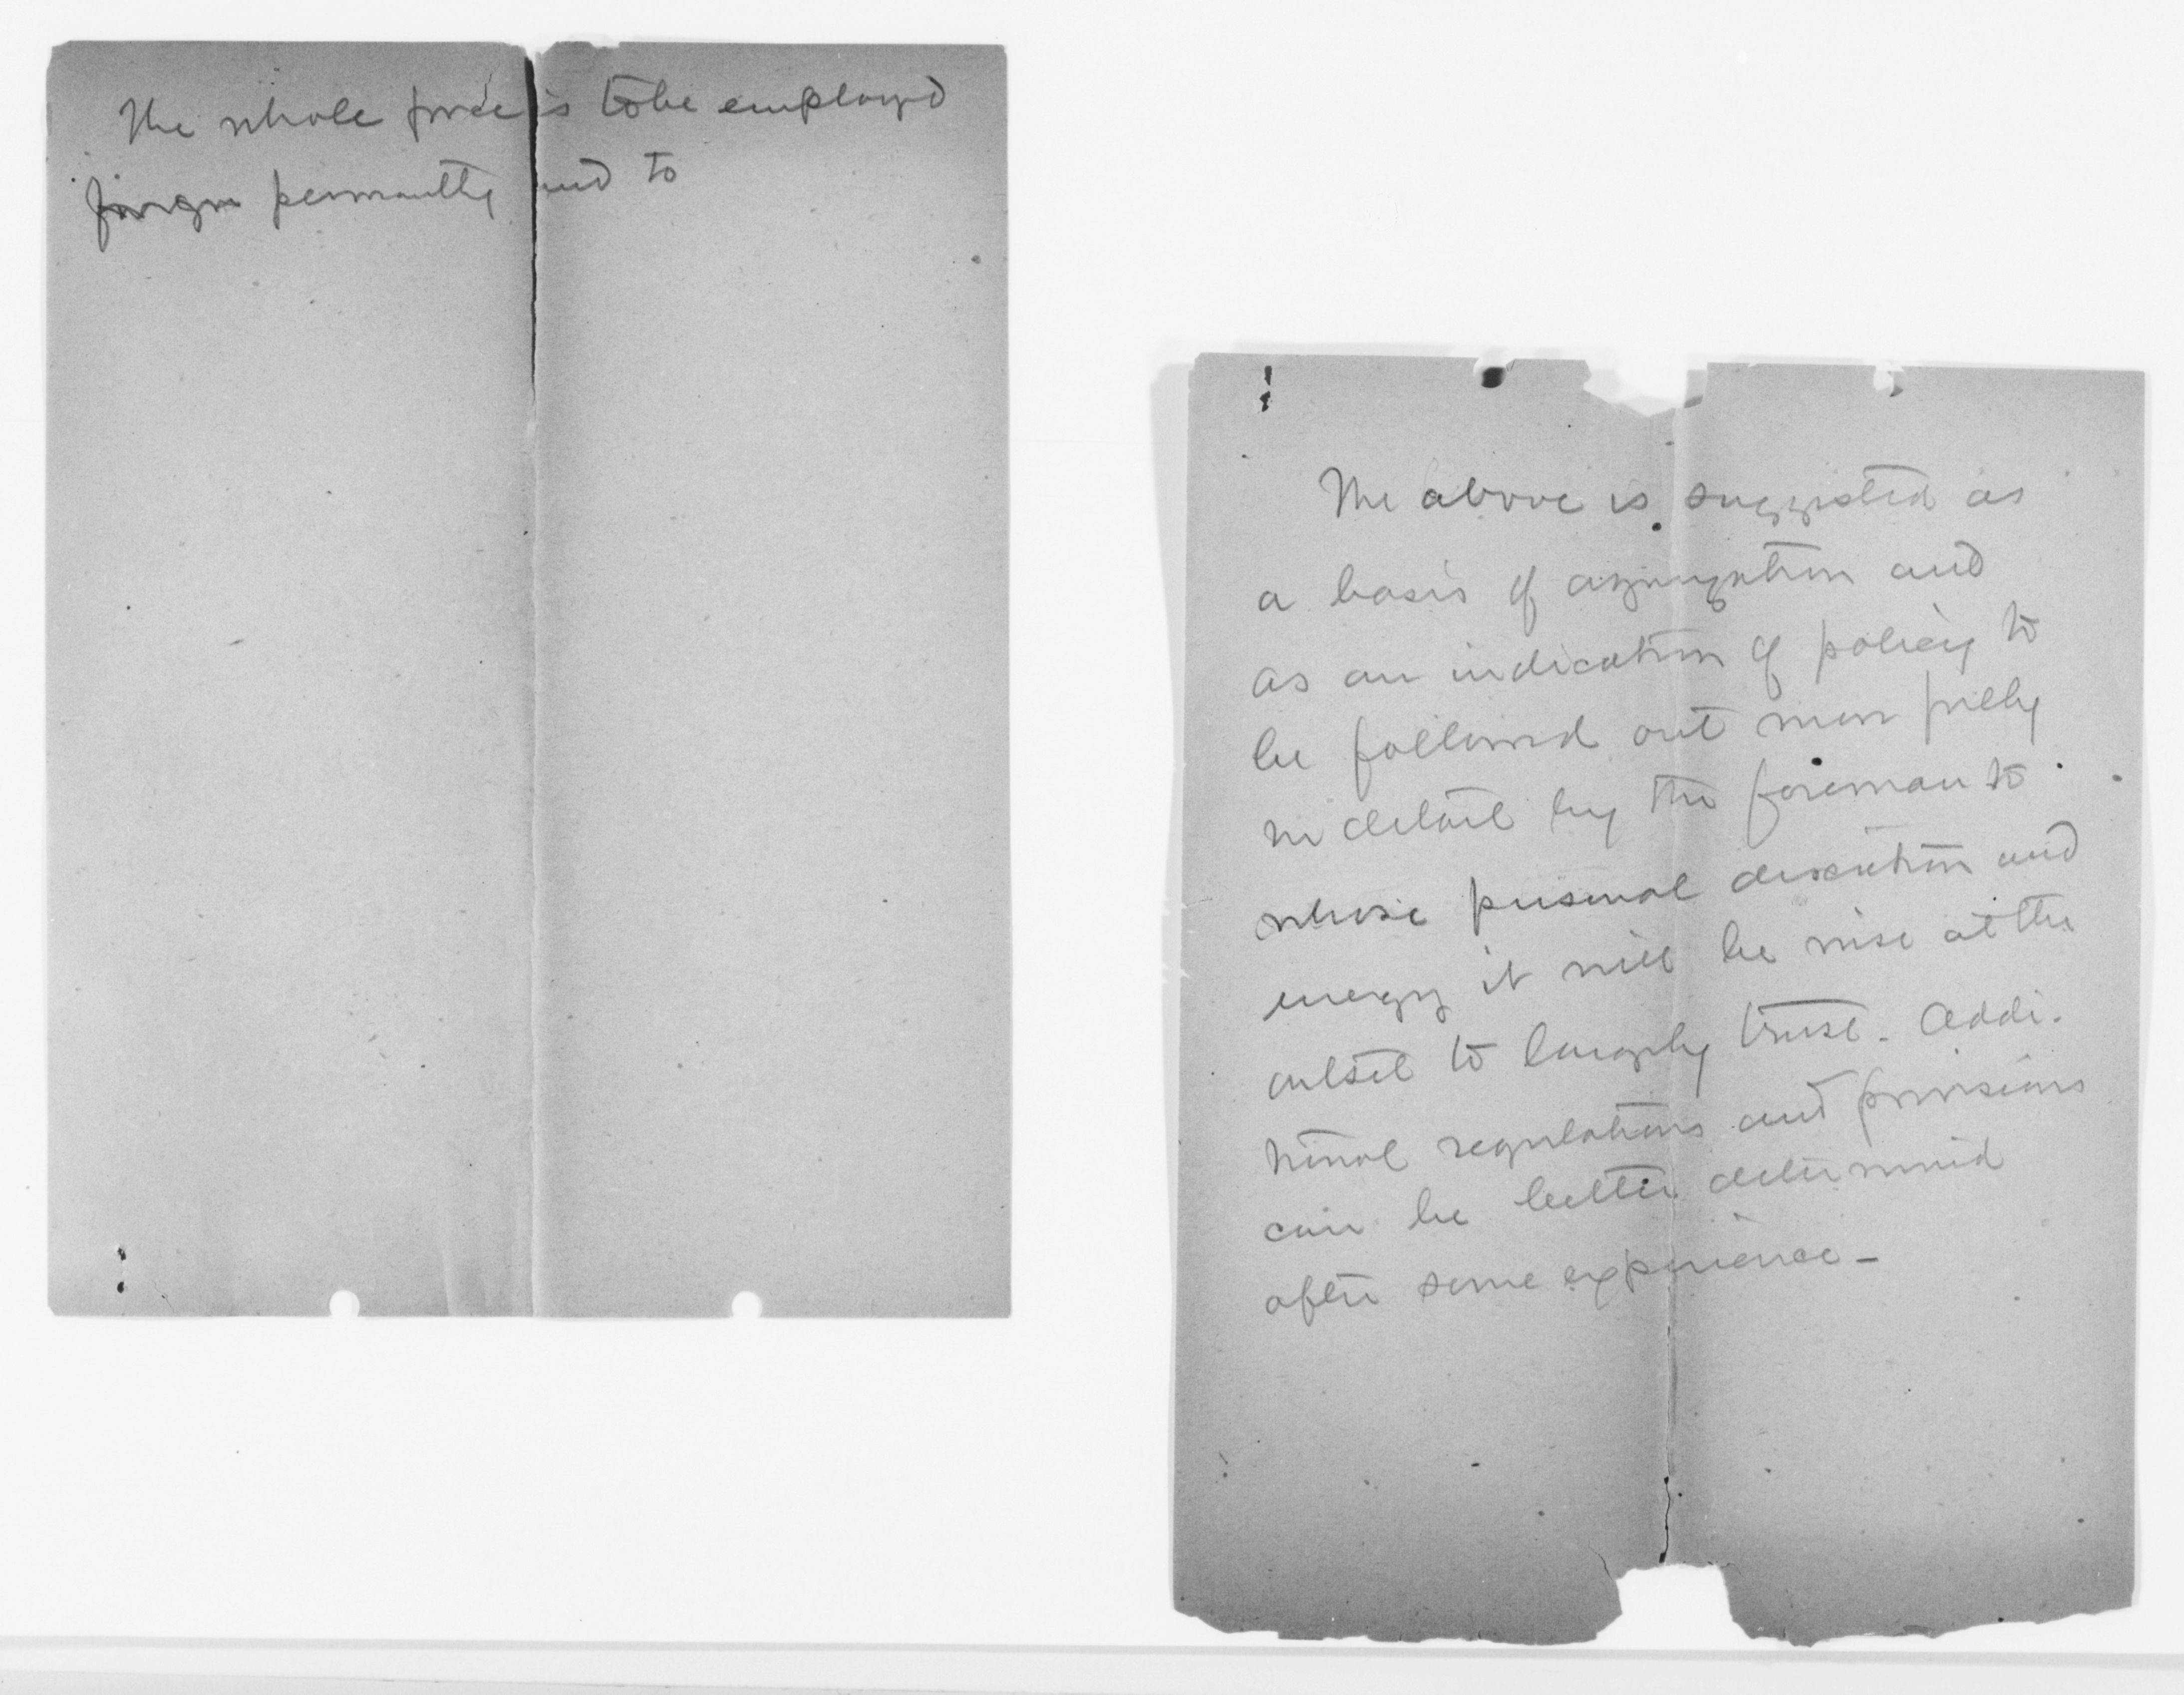 The whole force is to be employed
permantly and to
The above is suggested as
a basis of organization and
as an indication of policy to
be followed out more fully
in detail by the foreman to
whose personal discretion and
energy it will be wise at the
outset to largely trust. Addi-
tional regulations and provisions
can be better determined
after some experience -